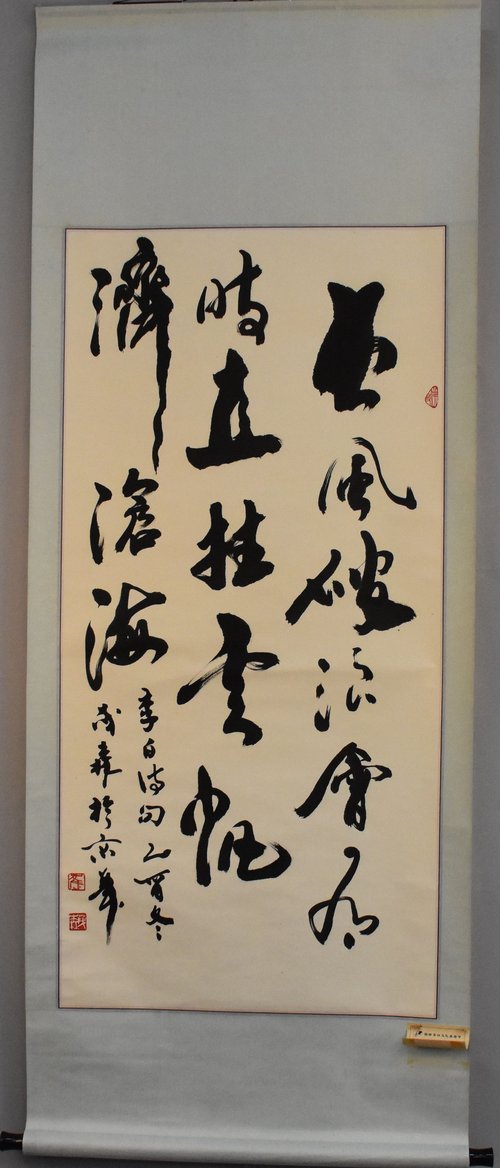 長風破浪會有
時直挂云帆
濟滄海
李白詩句乙酉冬
於京華